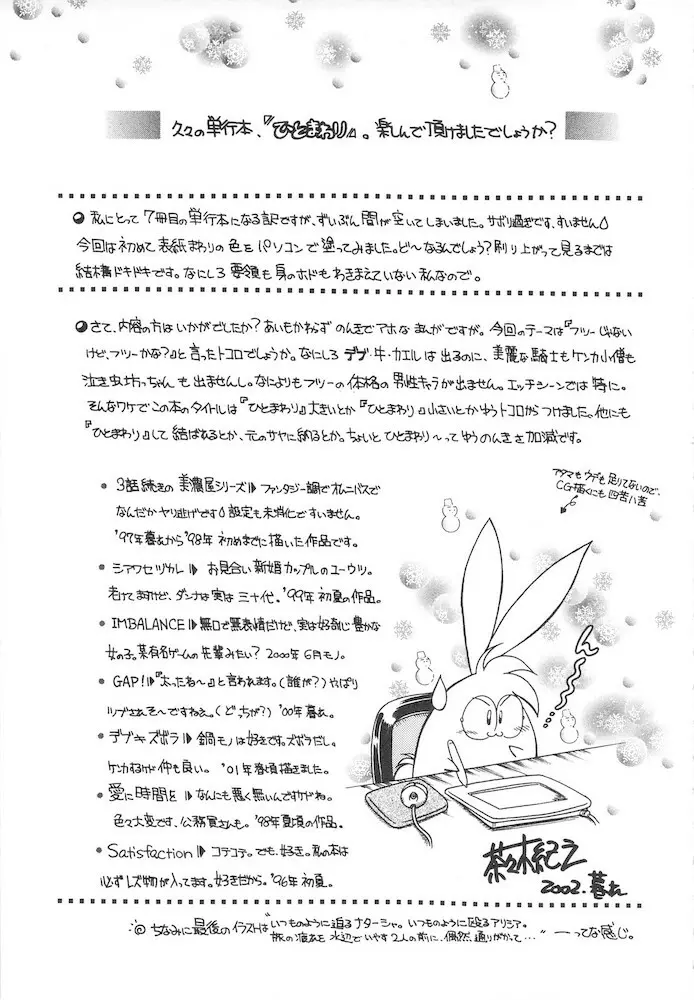 久々の単行本、『ひとまわり』。楽しんで頂けましたでしょうか?
私にとって7冊目の単行本になる訳ですが、ずいぶん間が空いてしまいました。サボリ過ぎです、すいません
今回は初めて表紙まわりの色をパソコンで塗ってみました。ど〜なるんでしょう?刷り上がって見るまでは
結構ドキドキです。なにしろ要領も身のホドもわきまえていない私なので。
さて、内容の方はいかがでしたか?あいもかわらずのんきでアホなまんがですが。今回のテーマは『フリーじゃない
けど、フリーかな?』と言ったトコロでしょうか。なにしろデブ・牛・カエルは出るのに、美麗な騎士もケンカ小僧も
泣き虫坊っちゃんも出ませんし。なによりもフリーの体格の男性キャラが出ません。エッチシーンでは特に。
そんなワケでこの本のタイトルは『ひとまわり』大きいとか『ひとまわり』小さいとかゆうトコロからつけました。他にも
『ひとまわり』して結ばれるとか、元のサヤに納るとか。ちょいとひとまわり〜ってゆうのんきな加減です。
3話続きの美濃屋シリーズ ファンタジー調でオムニバスで
なんだかヤリ逃げです 設定も未消化ですいません。
'97年暮れから'98年初めまでに描いた作品です。
シアワセヅカレ お見合い新婚カップルのユーウツ。
老けてますけど、ダンナは実は三十代。'99年初夏の作品。
IMBALANCE 無口で無表情だけど、実は好奇心豊かな
女の子。某有名ゲームの先輩みたい?2000年6月モノ。
GAP! 『太ったね〜』と言われます。(誰が?)やっぱり
ツブされそ〜ですねえ。(どっちが?)'00年暮れ。
デブキズボラ 鍋モノは好きです。ズボラだし。
ケンカするけど仲も良い。'01年春頃描きました。
愛に時間を なんにも悪く無いんですけどね。
色々大変です、公務員さんも。'98年夏頃の作品。
Satisfaction コテコテ。でも、好き。私の本は
必ずレズ物が入ってます。好きだから。'96年初夏。
アタマもウデも足りてないので、
CG描くにも四苦八苦
ん〜
茶々木紀之
2002.暮れ
ちなみに最後のイラストは"いつものように迫るナターシャ。いつものように殴るアリシア。
旅の疲れを水辺でいやす2人の前に、偶然通りがかって…"ーってな感じ。